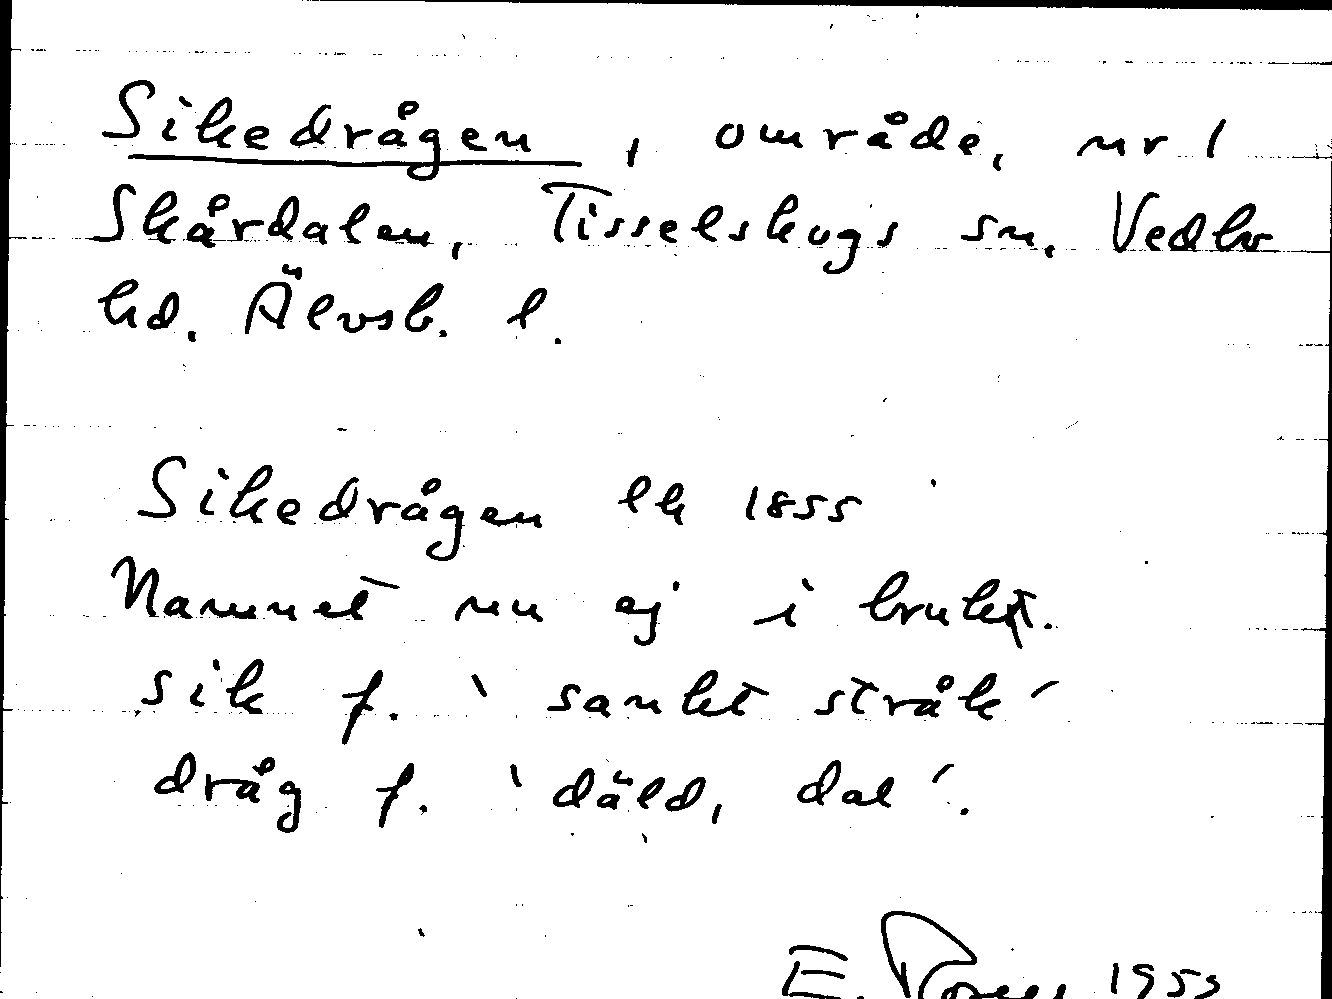 Sikedrågen, område, nr 1
Skårdalen, Tisselskogs sn. Vedbo
hd. Älvsb. l.
Sikedrågen lk 1855
Namnet nu ej i bruk.
sik f. `sankt stråk´
dråg f. `däld, dal´.
E. 1953